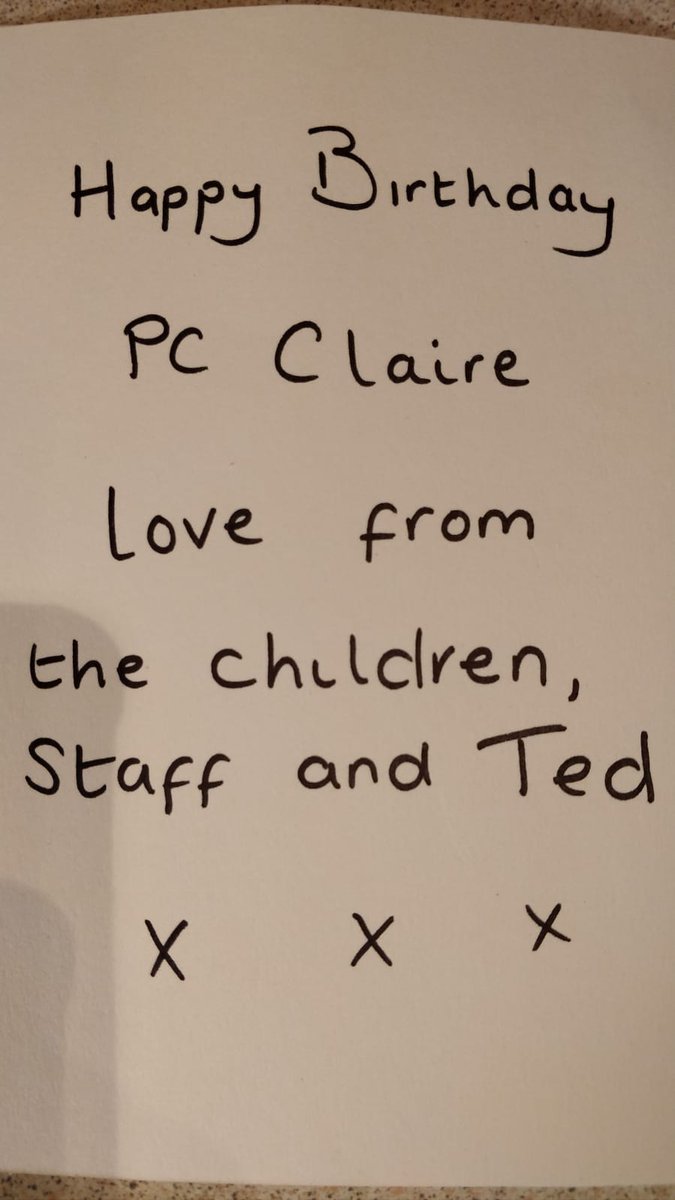 Happy Birthday
PC Claire
love from
the children,
Staff and Ted
x x x